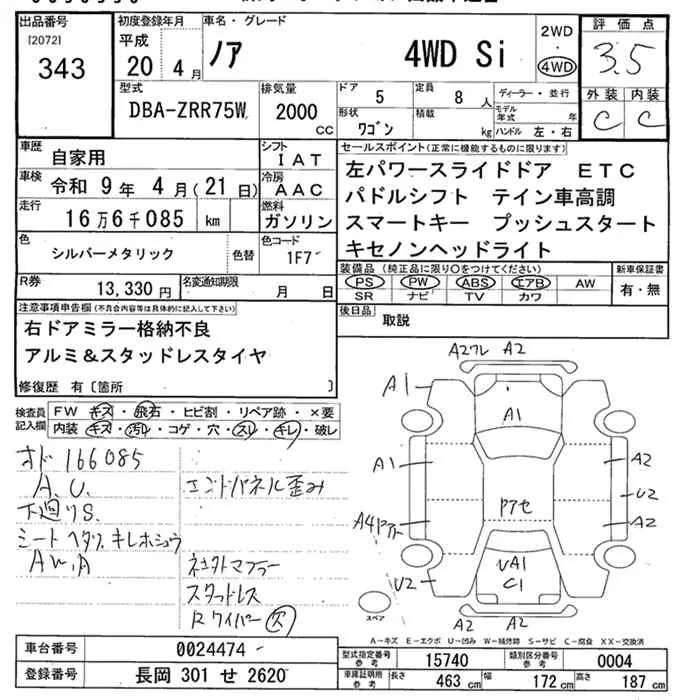 出品番号
[2072]
343
初度登録年月
平成
20 4月
車名・グレード
ノア 4WD Si
2WD
・
4WD
評価点
3.5
型式
DBA-ZRR75W
排気量
2000 CC
ドア
5
定員
8人
形状
ワゴン
積載
kg
ディーラー・並行
モデル年式 年
ハンドル 左・右
外装 内装
C C
車歴
自家用
車検
令和 9年 4月(21日)
走行
16万6千085 km
シフト
IAT
冷房
AAC
燃料
ガソリン
セールスポイント(正常に機能するものに限ります)
左パワースライドドア ETC
パドルシフト テイン車高調
スマートキー プッシュスタート
キセノンヘッドライト
色
シルバーメタリック
色替
色コード
1F7
R券
13,330円
名変通知期限
月 日
装備品(純正品に限り○をつけてください)
PS PW ABS エアB AW
SR ナビ TV カワ
新車保証書
有・無
後日品
取説
注意事項申告欄(不具合内容等は具体的に記入して下さい)
右ドアミラー格納不良
アルミ&スタッドレスタイヤ
修復歴 有〔箇所 〕
検査員記入欄
FW キズ・飛石・ヒビ割・リペア跡・×要
内装 キズ・汚レ・コゲ・穴・スレ・キレ・破レ
オド 166085
A.U.
下廻りS.
シート ヘタリ、キレホシュウ
AW.A
エンドパネル歪み
社外マフラー
スタッドレス
Rワイパー 欠
A2フレ A2
A1
A1
A1
A2
U2
A2
Pアセ
U2
UA1
C1
A2 A2
スペア
A-キズ E-エクボ U-凹み W-補修跡 S-サビ C-腐食 XX-交換済
車台番号
0024474
登録番号
長岡 301 せ 2620
型式指定番号
参考
15740
類別区分番号
参考
0004
車庫証明用
参考
長さ
463 cm
幅
172 cm
高さ
187 cm